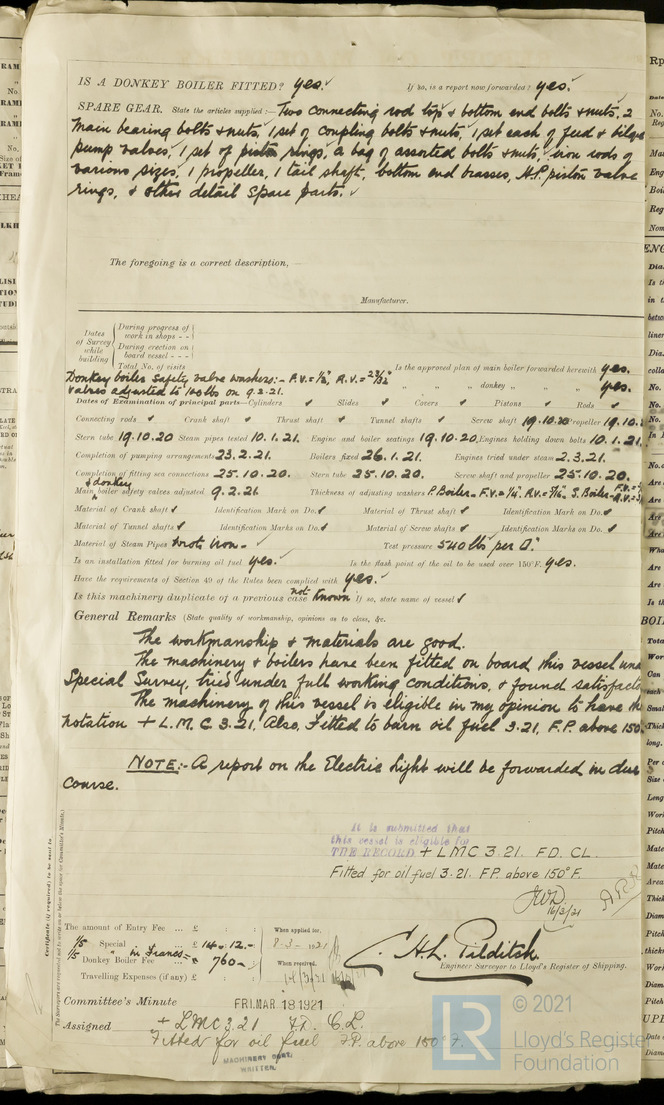 IS A DONKEY BOILER FITTED? yes. If so, is a report now forwarded? yes.
SPARE GEAR. State the articles supplied:— Two connecting rod top & bottom end bolts & nuts, 2
main bearing bolts & nuts, 1 set of coupling bolts & nuts, 1 set each of feed & bilge
pump valves, 1 set of piston rings, a bag of assorted bolts & nuts, iron rods of
various sizes, 1 propeller, 1 tail shaft, bottom end brasses, H.P. piston valve
rings, & other detail spare parts.
The foregoing is a correct description,
Manufacturer.
Dates of Survey while building
During progress of work in shops - -
During erection on board vessel - - -
Total No. of visits
Is the approved plan of main boiler forwarded herewith yes.
Donkey boiler safety valve washers:- F.V. = 1/2", A.V. = 23/32" " " " donkey " " yes.
valves adjusted to 100 lbs on 9.2.21.
Dates of Examination of principal parts—Cylinders ✓ Slides ✓ Covers ✓ Pistons ✓ Rods ✓
Connecting rods ✓ Crank shaft ✓ Thrust shaft ✓ Tunnel shafts ✓ Screw shaft 19.10.20 Propeller 19.10.
Stern tube 19.10.20 Steam pipes tested 10.1.21. Engine and boiler seatings 19.10.20. Engines holding down bolts 10.1.21.
Completion of pumping arrangements 23.2.21. Boilers fixed 26.1.21. Engines tried under steam 2.3.21.
Completion of fitting sea connections 25.10.20. Stern tube 25.10.20. Screw shaft and propeller 25.10.20.
& donkey
Main boiler safety valves adjusted 9.2.21 Thickness of adjusting washers P. Boiler - F.V. = 1/4" A.V. = 5/16", S. Boiler -
Material of Crank shaft ✓ Identification Mark on Do. ✓ Material of Thrust shaft ✓ Identification Mark on Do. ✓
Material of Tunnel shafts ✓ Identification Marks on Do. ✓ Material of Screw shafts ✓ Identification Marks on Do. ✓
Material of Steam Pipes Wrote Iron - ✓ Test pressure 540 lbs per □".
Is an installation fitted for burning oil fuel yes. Is the flash point of the oil to be used over 150°F. yes.
Have the requirements of Section 49 of the Rules been complied with yes.
Is this machinery duplicate of a previous case not known If so, state name of vessel ✓
General Remarks (State quality of workmanship, opinions as to class, &c.
The workmanship & materials are good.
The machinery & boilers have been fitted on board this vessel
Special Survey, tried under full working conditions, & found
The machinery of this vessel is eligible in my opinion to have
notation + L.M.C 3.21. Also, Fitted to burn oil fuel 3.21. F.P. above 150
NOTE:- A report on the Electric Light will be forwarded in due
course.
It is submitted that
this vessel is eligible for
THE RECORD + LMC 3.21. FD. CL.
Fitted for oil fuel 3.21. F.P. above 150° F.
16/3/21
The amount of Entry Fee ... £ : : When applied for,
1/5 Special £ 14 - 12. - 8-3-1921
1/5 Donkey Boiler Fee in Francs = 760 - When received,
Travelling Expenses (if any) £
H.L. Pilditch
Engineer Surveyor to Lloyd's Register of Shipping.
Committee's Minute FRI. MAR 18 1921
Assigned + LMC 3.21 F.D. C.L.
Fitted for oil fuel F.P. above 150° F.
MACHINERY CERT.
WRITTEN.
LR
© 2021
Lloyd's Register
Foundation